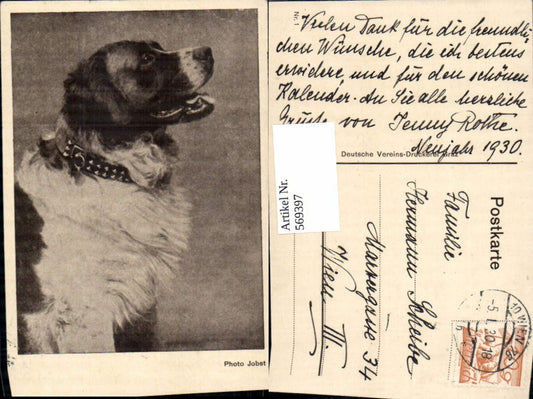 Photo Jobst
Nr. 1
Vielen Dank für die freundli-
chen Wünsche, die ich bestens
erwidere, und für den schönen
Kalender. An Sie alle herzliche
Grüße von Jenny Rothe.
Neujahr 1930.
Deutsche Vereins-Druckerei Graz
Artikel Nr.
569397
Postkarte
Familie
Hermann Scheibe
Marxergasse 34
Wien III.
WIEN
-5.I.30.18